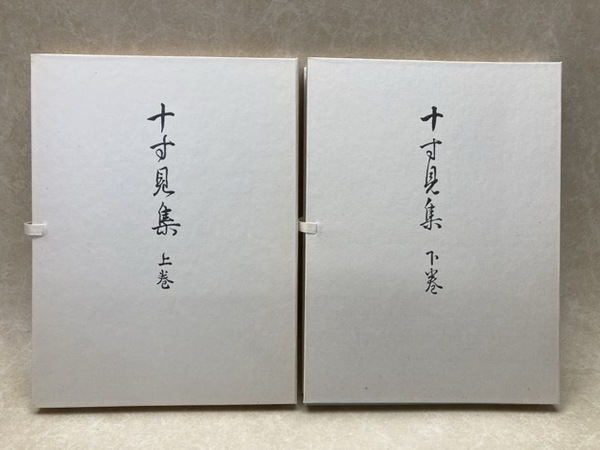 十寸見集
上巻
十寸見集
下巻